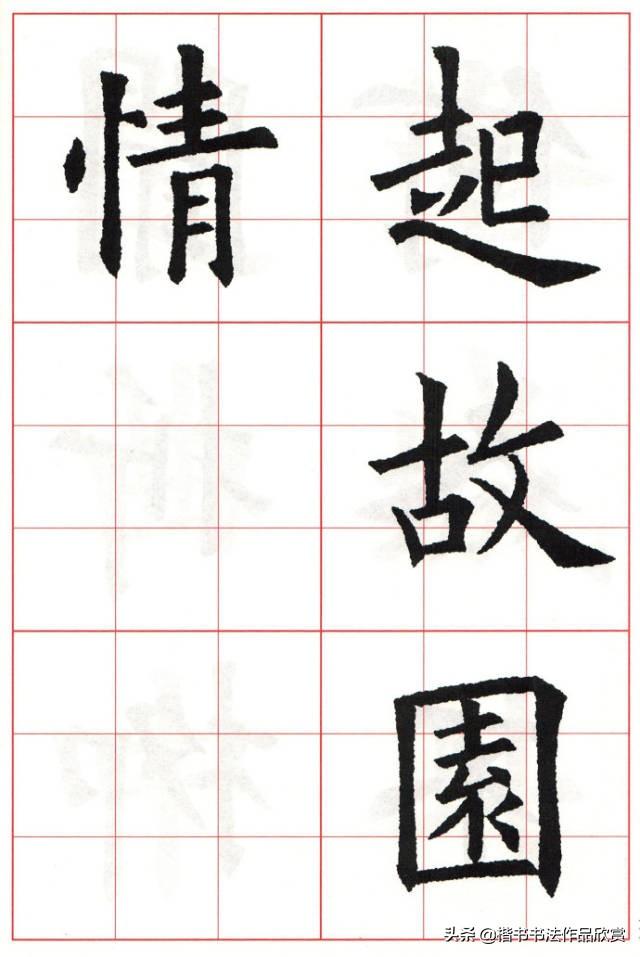 起故園
情
头条 @楷书书法作品欣赏